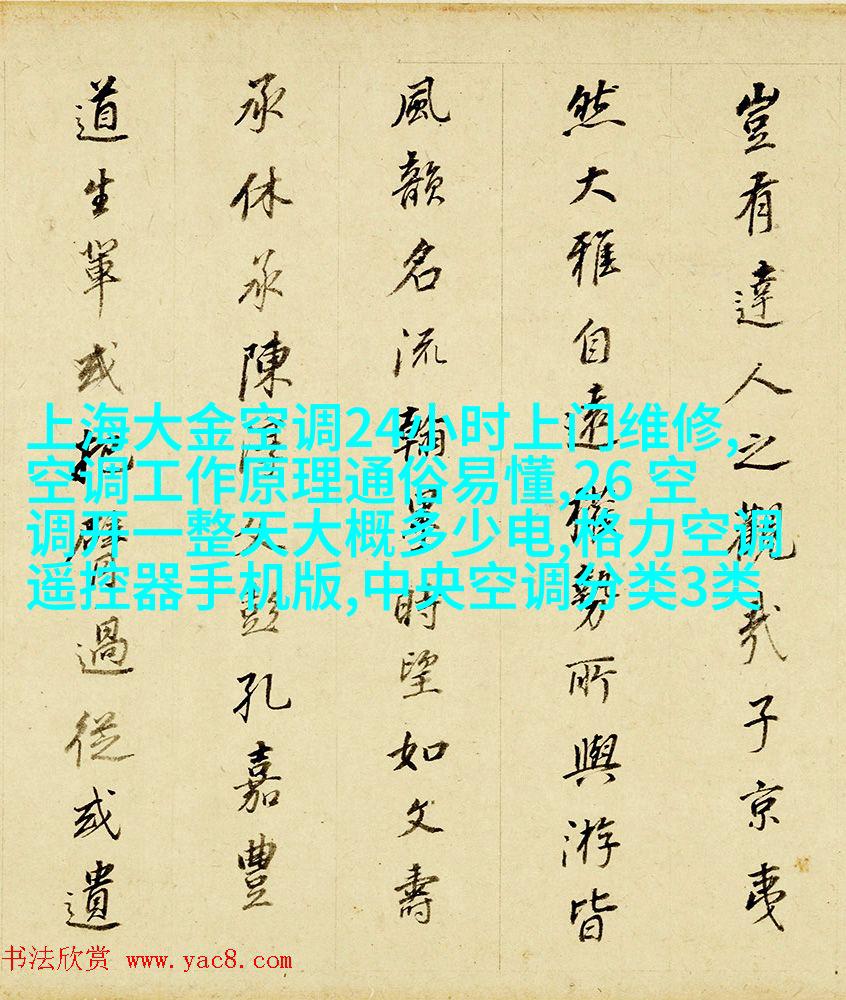 豈有達人之觀哉子京夷
然大雅自遠權勢所與游皆
風韻名流翰墨時望如文壽
承休承陳淳父彭孔嘉豐
道生輩或臂過從或遺
上海大金空调24小时上门维修,
空调工作原理通俗易懂,26 空
调开一整天大概多少电,格力空调
遥控器手机版,中央空调分类3类
书法欣赏 www.yac8.com